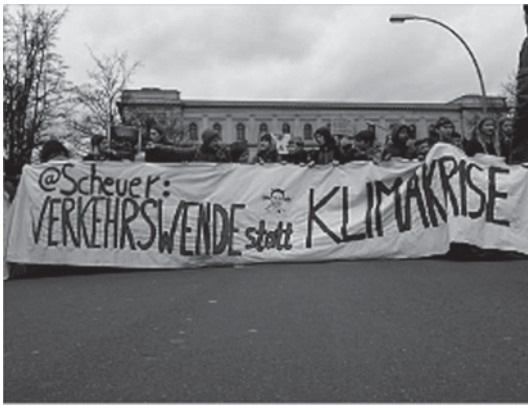 @Scheuer:
VERKEHRSWENDE statt KLIMAKRISE